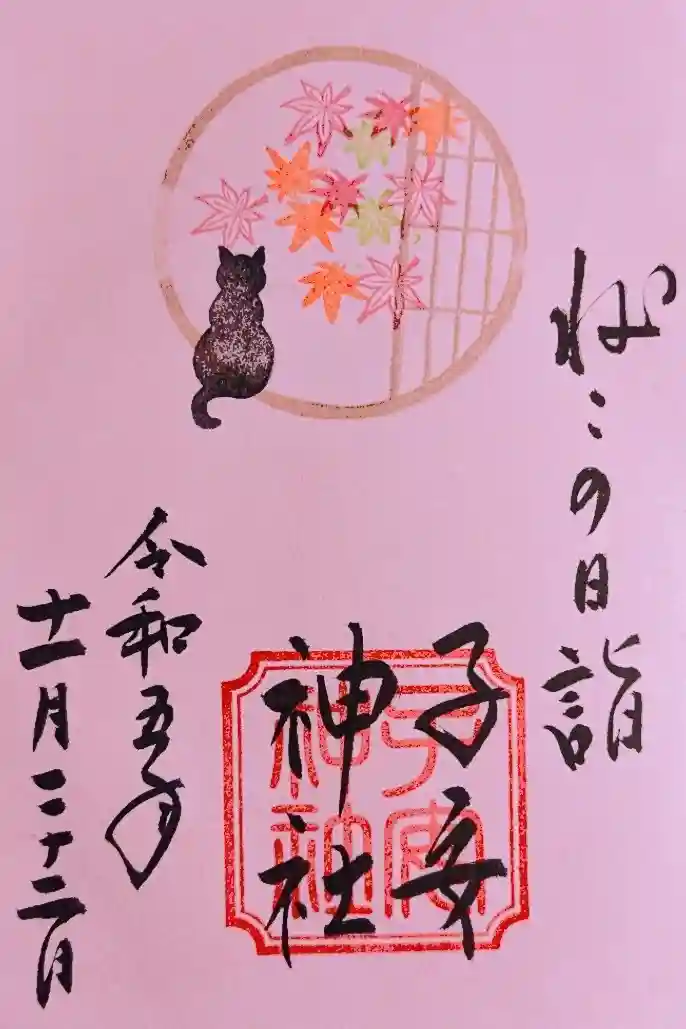 ねこの日詣
子安
神社
子安
神社
令和五年
十一月二十二日